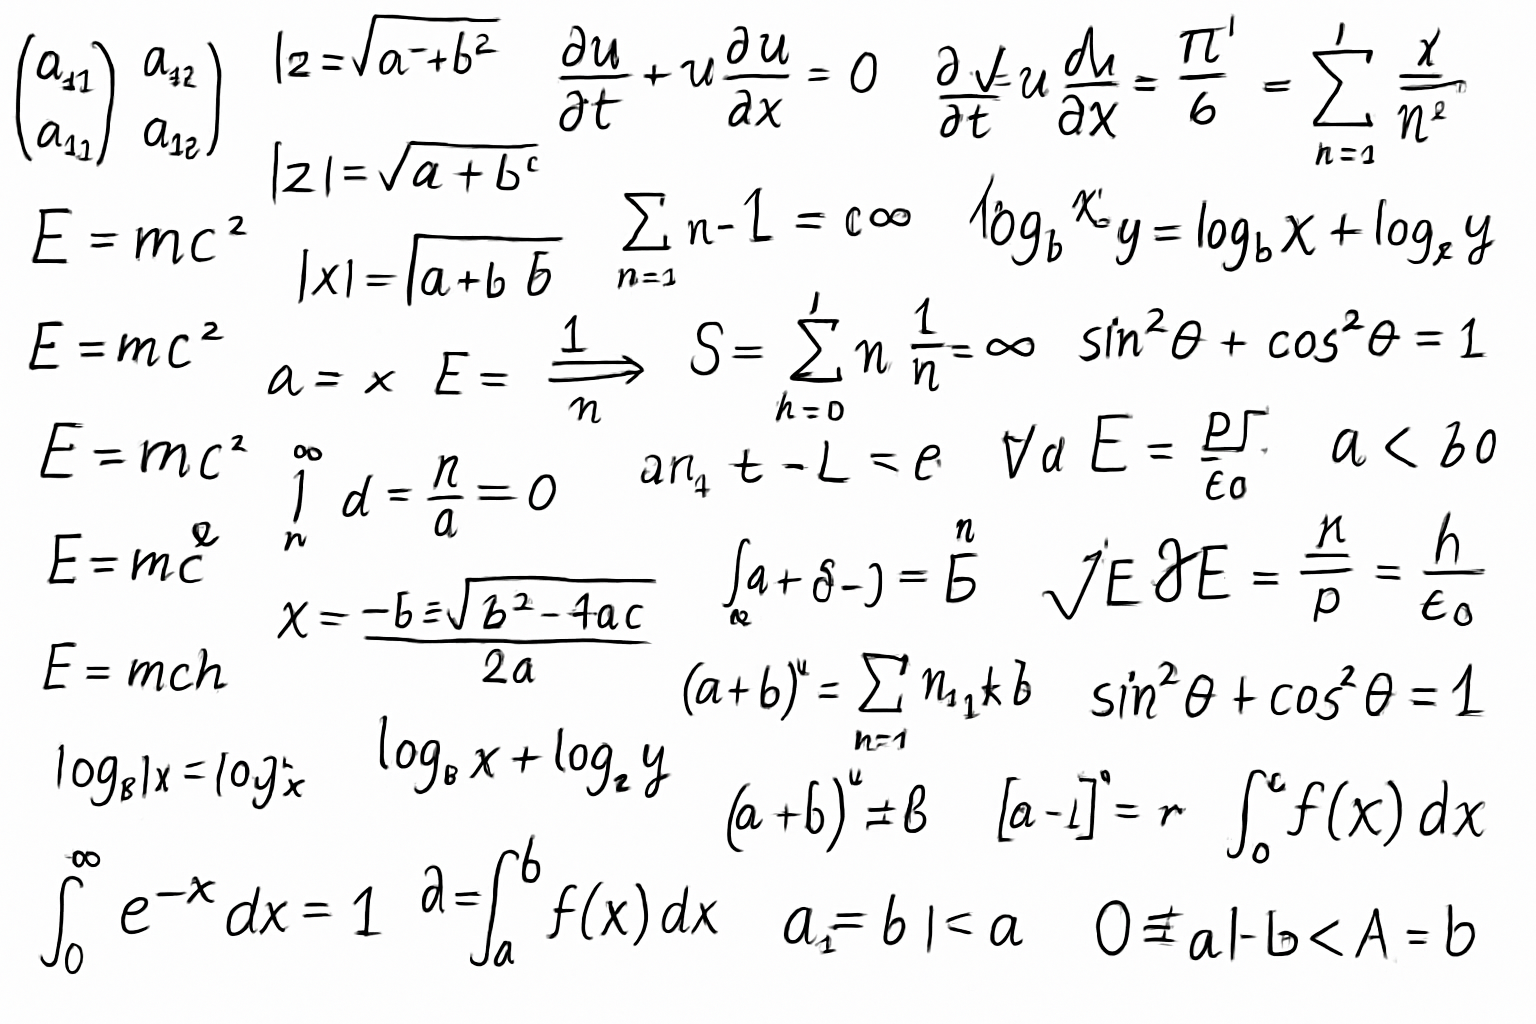 (a₁₁) a₁₂)
(a₁₁ a₁₂)
|z = √a⁻+b²
∂u/∂t + u ∂u/∂x = 0
∂√/∂t = u du/∂x = π'/6 = ∑ n=1 x/nᵉ
|z| = √a + bᶜ
E = mc²
|x| = √a+b b
∑ n=1 n-1 = c∞
log_b x y = log_b x + log y
E = mc²
a = x E = 1/n
S = ∑ h=0 n 1/n = ∞
sin²θ + cos²θ = 1
E = mc²
∞ n d = n/a = 0
an t - L = e
∀d E = ps/ε0
a < b0
E = mcᵉ
x = -b ± √b² - 4ac / 2a
∫a + δ - ) = bⁿ
√E ∂E = n/p = h/ε0
E = mch
(a+b)ᵘ = ∑ n=1 n₁₁kb
sin²θ + cos²θ = 1
log_B|x = log x
log_B x + log₂ y
(a+b)ᵘ = B
[a-1]⁰ = r
∫₀ᶜ f(x) dx
∫₀^∞ e^-x dx = 1
∂ = ∫ₐᵇ f(x) dx
a₁ = b |< a
0 ≠ a|-b < A = b